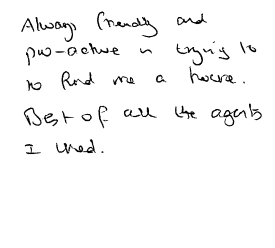 Always friendly and
pro-active in trying to
to find me a house.
Best of all the agents
I used.